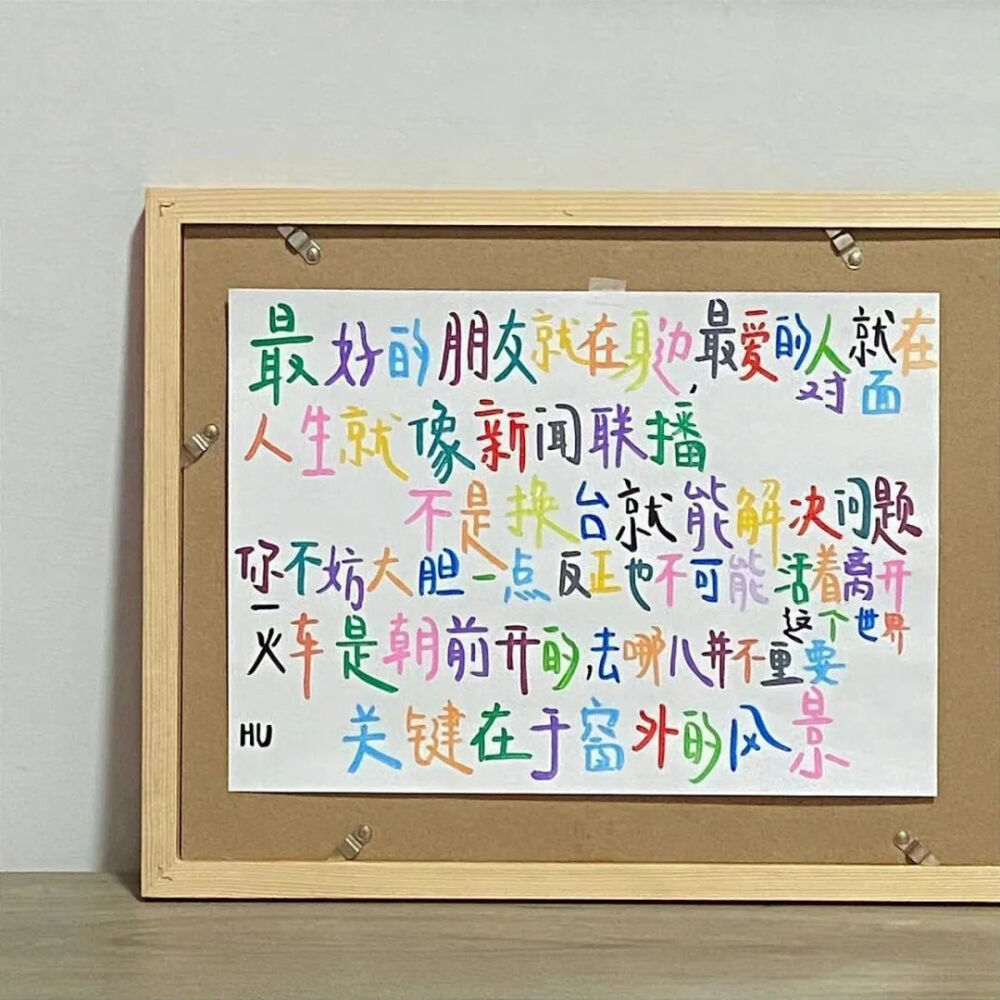 最好的朋友就在身边,最爱的人就在
对面
人生就像新闻联播
不是换台就能解决问题
你不妨大胆一点反正也不可能活着离开
这个世界
火车是朝前开的去哪儿并不重要
关键在于窗外的风景
HU